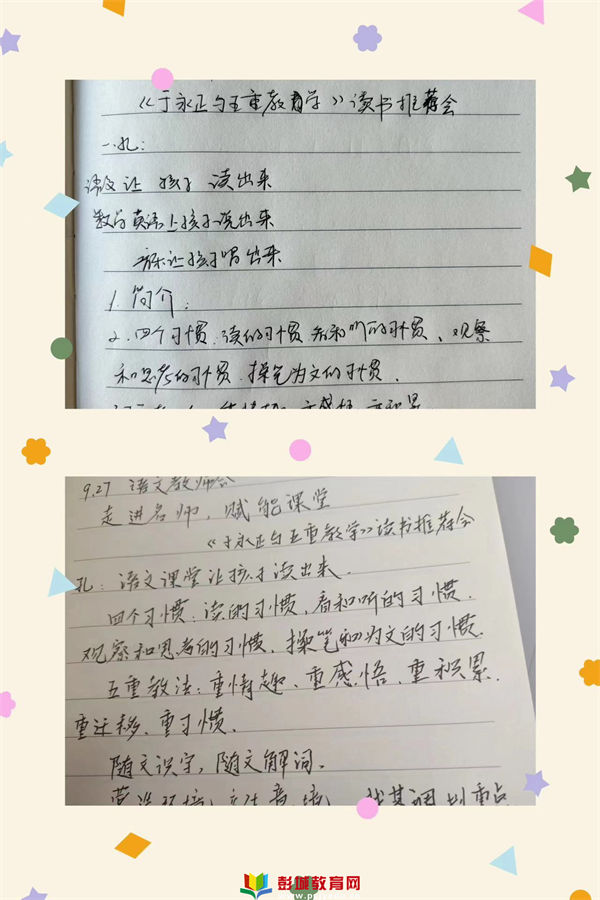 《于永正与五重教育学》读书推荐会
一、孔:
语文让孩子读出来
数学英语让孩子说出来
音乐让孩子唱出来
1. 简介:
2. 四个习惯:读的习惯、看和听的习惯、观察
和思考的习惯、操笔为文的习惯、
9.27 语文教师会
走进名师,赋能课堂
《于永正与五重教学》读书推荐会
孔:语文课堂让孩子读出来.
四个习惯:读的习惯,看和听的习惯.
观察和思考的习惯、操笔和为文的习惯.
五重教法:重情趣、重感悟、重积累、
重迁移、重习惯.
随文识字,随文解词.
彭城教育网